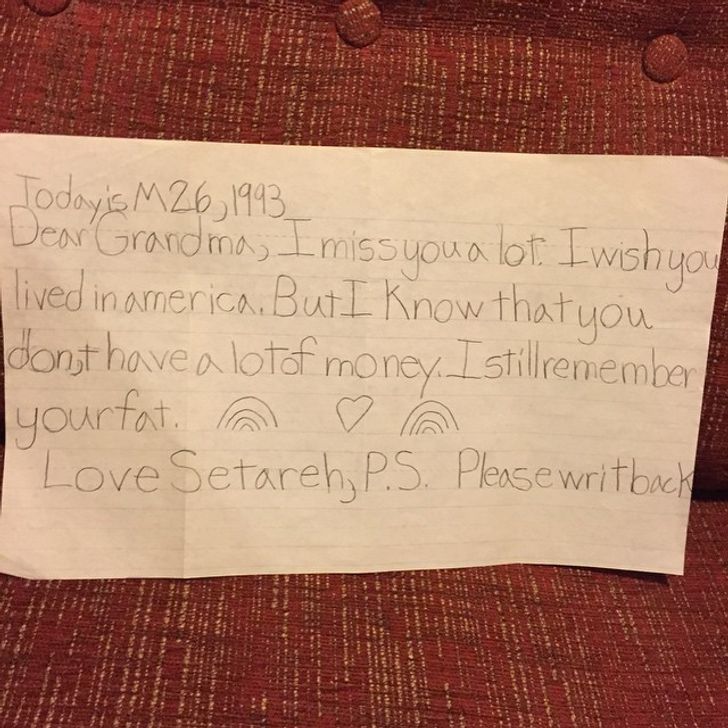 Today is M26, 1993
Dear Grandma, I miss you a lot. I wish you
lived in america. But I Know that you
don,t have a lot of money. I still remember
your fat.
Love Setareh, P.S. Please writ back